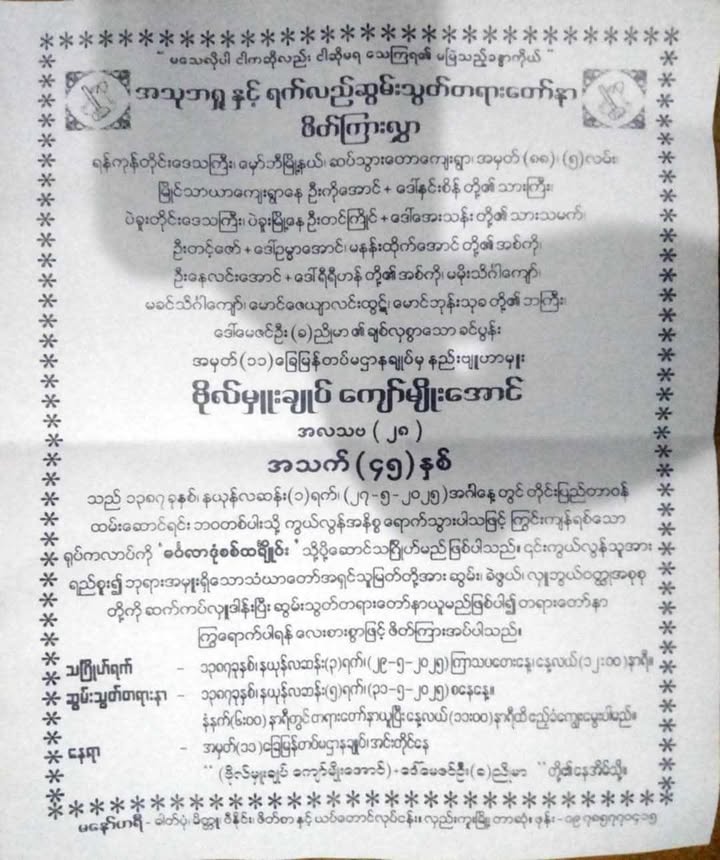 " မသေလိုပါ ငါကဆိုလည်း ငါဆိုမရ သေကြရ၏ မမြဲသည့်ခန္ဓာကိုယ် "
အသုဘရှု နှင့် ရက်လည်ဆွမ်းသွတ်တရားတော်နာ
ဖိတ်ကြားလွှာ
ရန်ကုန်တိုင်းဒေသကြီး၊ မှော်ဘီမြို့နယ်၊ ဆပ်သွားတောကျေးရွာ၊ အမှတ်(၈၈)၊ (၅)လမ်း၊
မြိုင်သာယာကျေးရွာနေ ဦးကိုအောင် + ဒေါ်နှင်းစိန် တို့၏ သားကြီး၊
ပဲခူးတိုင်းဒေသကြီး၊ ပဲခူးမြို့နေ ဦးတင်ကြိုင် + ဒေါ်အေးသန်း တို့၏ သားသမက်၊
ဦးတင့်ဇော် + ဒေါ်ဥမ္မာအောင်၊ မနန်းထိုက်အောင် တို့၏ အစ်ကို၊
ဦးနေလင်းအောင် + ဒေါ်ရီရီဟန် တို့၏ အစ်ကို၊ မမိုးသိင်္ဂါကျော်၊
မခင်သိင်္ဂါကျော်၊ မောင်ဇေယျာလင်းထွဋ်၊ မောင်ဘုန်းသုခ တို့၏ ဘကြီး၊
ဒေါ်မေဇင်ဦး (ခ) ညိုမာ ၏ ချစ်လှစွာသော ခင်ပွန်း
အမှတ်(၁၁)ခြေမြန်တပ်မဌာနချုပ်မှ နည်းဗျူဟာမှူး
ဗိုလ်မှူးချုပ် ကျော်မျိုးအောင်
အလသဗ ( ၂၈ )
အသက် (၄၅) နှစ်
သည် ၁၃၈၇ ခုနှစ်၊ နယုန်လဆန်း(၁)ရက်၊ (၂၇-၅-၂၀၂၅) အင်္ဂါနေ့ တွင် တိုင်းပြည်တာဝန်
ထမ်းဆောင်ရင်း ဘဝတစ်ပါးသို့ ကွယ်လွန်အနိစ္စ ရောက်သွားပါသဖြင့် ကြွင်းကျန်ရစ်သော
ရုပ်ကလာပ်ကို 'မင်္ဂလာဒုံစစ်သင်္ချိုင်း' သို့ပို့ဆောင်သင်္ဂြိုဟ်မည် ဖြစ်ပါသည်။ ၎င်းကွယ်လွန်သူအား
ရည်စူး၍ ဘုရားအမှူးရှိသောသံဃာတော်အရှင်သူမြတ်တို့အား ဆွမ်း၊ ခဲဖွယ်၊ လှူဘွယ်ဝတ္ထုအစုစု
တို့ကို ဆက်ကပ်လှူဒါန်းပြီး ဆွမ်းသွတ်တရားတော်နာယူမည်ဖြစ်ပါ၍ တရားတော်နာ
ကြွရောက်ပါရန် လေးစားစွာဖြင့် ဖိတ်ကြားအပ်ပါသည်။
သင်္ဂြိုဟ်ရက် - ၁၃၈၇ခုနှစ်၊ နယုန်လဆန်း(၃)ရက်၊ (၂၉-၅-၂၀၂၅) ကြာသပတေးနေ့၊ နေ့လယ် (၁၂:၀၀) နာရီ။
ဆွမ်းသွတ်တရားနာ - ၁၃၈၇ခုနှစ်၊ နယုန်လဆန်း(၅)ရက်၊ (၃၁-၅-၂၀၂၅) စနေနေ့။
နံနက်(၆:၀၀) နာရီတွင် တရားတော်နာယူပြီး နေ့လယ် (၁၁:၀၀) နာရီထိ ဧည့်ခံကျွေးမွေးပါမည်။
နေရာ - အမှတ်(၁၁)ခြေမြန်တပ်မဌာနချုပ်၊ အင်းတိုင်နေ
" (ဗိုလ်မှူးချုပ် ကျော်မျိုးအောင်) - ဒေါ်မေဇင်ဦး (ခ) ညိုမာ " တို့၏နေအိမ်သို့။
မနော်ဟရီ - ဓါတ်ပုံ၊ မိတ္တူ၊ ဗီနိုင်း၊ ဖိတ်စာ နှင့် ယပ်တောင်လုပ်ငန်း။ လှည်းကူးမြို့၊ တာဆုံ။ ဖုန်း - ၀၉၇၈၅၇၇၀၄၁၅